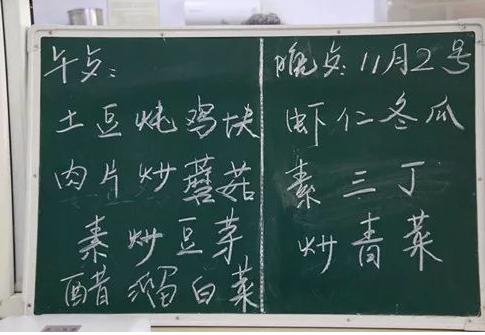 午点：
土豆炖鸡块
肉片炒蘑菇
素炒豆芽
醋溜白菜
晚点：11月2号
虾仁冬瓜
素三丁
炒青菜